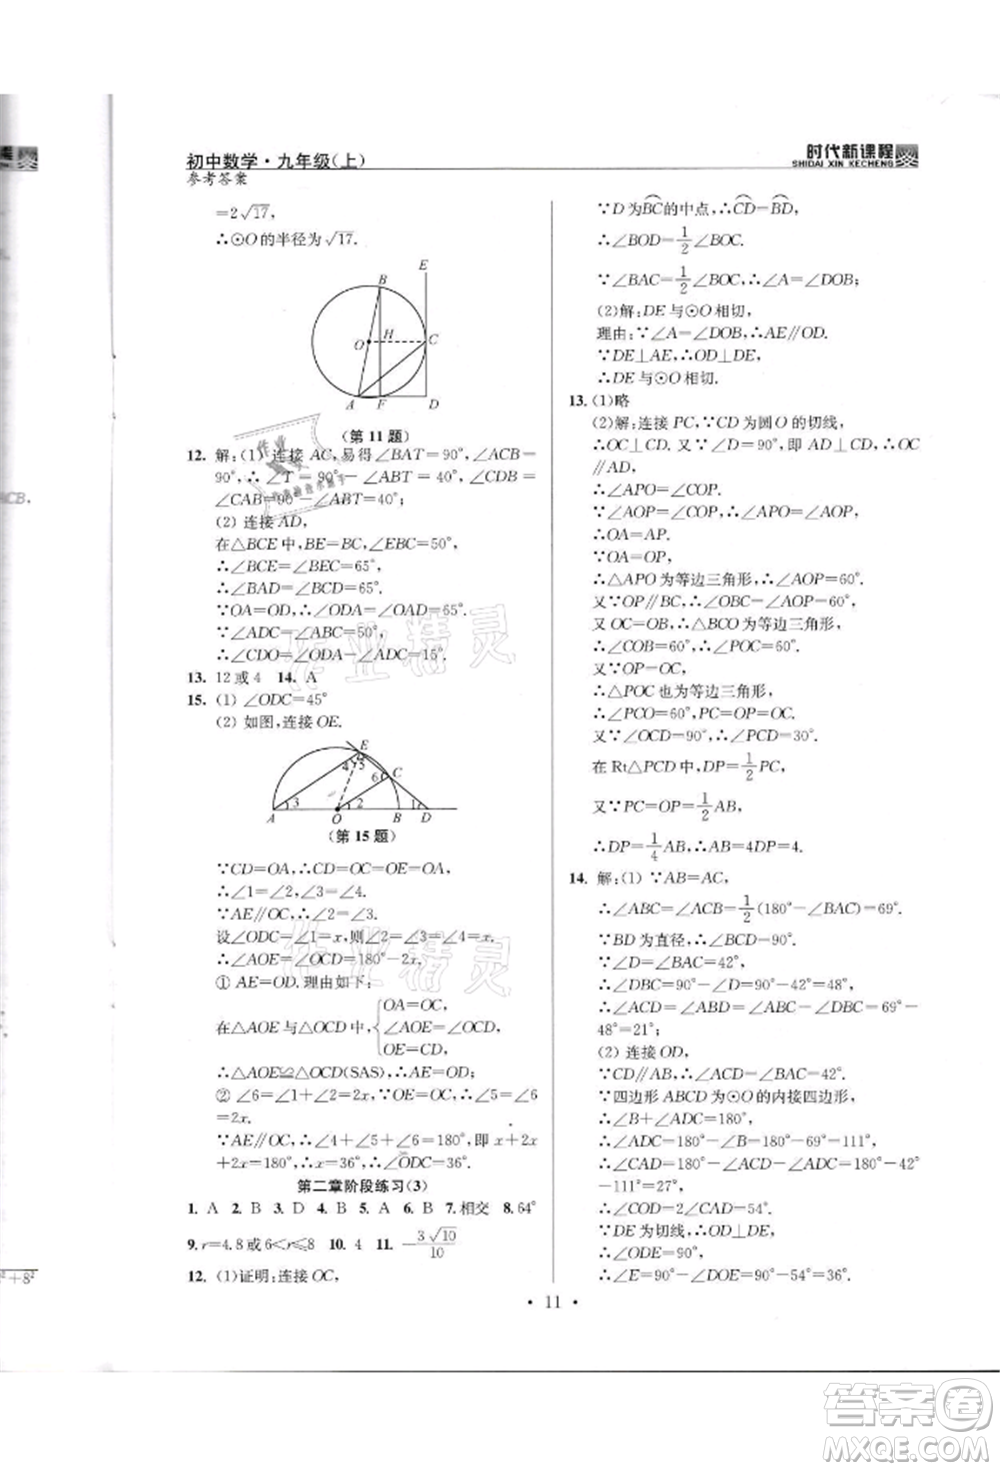 初中数学·九年级(上)
参考答案
时代新课程
SHIDAI XIN KECHENG
=2√17,
∴⊙O的半径为√17.
E
B
H
O
C
A
F
D
(第11题)
12. 解:(1) 连接 AC,易得∠BAT=90°,∠ABT=50°,∴∠T=90°-∠ABT=40°,∠CDB=
∠CAB=90°-∠ABT=40°;
(2) 连接 AD,
在△BCE中,BE=BC,∠EBC=50°,
∴∠BCE=∠BEC=65°,
∴∠BAD=∠BCD=65°.
∵OA=OD,∴∠ODA=∠OAD=65°.
∵∠ADC=∠ABC=50°,
∴∠CDO=∠ODA-∠ADC=15°.
13. 12或4 14. A
15. (1) ∠ODC=45°
(2) 如图,连接OE.
E
4
5
6
C
3
2
1
A
O
B
D
(第15题)
∵CD=OA,∴CD=OC=OE=OA,
∴∠1=∠2,∠3=∠4.
∵AE∥OC,∴∠2=∠3.
设∠ODC=∠1=x,则∠2=∠3=∠4=x.
∴∠AOE=∠OCD=180°-2x.
① AE=OD.理由如下:
在△AOE与△OCD中,
OA=OC,
∠AOE=∠OCD,
OE=CD,
∴△AOE≌△OCD(SAS),∴AE=OD;
② ∠6=∠1+∠2=2x.∵OE=OC,∴∠5=∠6=
2x.
∵AE∥OC,∴∠4+∠5+∠6=180°,即 x+2x
+2x=180°,∴x=36°,∴∠ODC=36°.
第二章阶段练习(3)
1. A 2. B 3. D 4. B 5. A 6. B 7. 相交 8. 64°
9. r=4.8或6<r≤8 10. 4 11. -3√10/10
12. (1)证明:连接OC,
∵D为BC的中点,∴CD=BD,
∴∠BOD=1/2∠BOC.
∵∠BAC=1/2∠BOC,∴∠A=∠DOB;
(2)解:DE与⊙O相切,
理由:∵∠A=∠DOB,∴AE∥OD.
∵DE⊥AE,∴OD⊥DE.
∴DE与⊙O相切.
13. (1)略
(2)解:连接PC,∵CD为圆O的切线,
∴OC⊥CD.又∵∠D=90°,即AD⊥CD,∴OC
∥AD,
∴∠APO=∠COP.
∵∠AOP=∠COP,∴∠APO=∠AOP,
∴OA=AP.
∵OA=OP,
∴△APO为等边三角形,∴∠AOP=60°.
又∵OP∥BC,∴∠OBC=∠AOP=60°,
又∵OC=OB,∴△BCO为等边三角形,
∴∠COB=60°,∴∠POC=60°.
又∵OP=OC,
∴△POC也为等边三角形,
∴∠PCO=60°,PC=OP=OC.
又∵∠OCD=90°,∴∠PCD=30°.
在Rt△PCD中,DP=1/2PC,
又∵PC=OP=1/2AB,
∴DP=1/4AB,∴AB=4DP=4.
14. 解:(1) ∵AB=AC,
∴∠ABC=∠ACB=1/2(180°-∠BAC)=69°.
∵BD为直径,∴∠BCD=90°.
∵∠D=∠BAC=42°,
∴∠DBC=90°-∠D=90°-42°=48°,
∴∠ACD=∠ABD=∠ABC-∠DBC=69°-
48°=21°;
(2) 连接OD,
∵CD∥AB,∴∠ACD=∠BAC=42°.
∵四边形ABCD为⊙O的内接四边形,
∴∠B+∠ADC=180°,
∴∠ADC=180°-∠B=180°-69°=111°,
∴∠CAD=180°-∠ACD-∠ADC=180°-42°
-111°=27°,
∴∠COD=2∠CAD=54°.
∵DE为切线,∴OD⊥DE,
∴∠ODE=90°,
∴∠E=90°-∠COD=90°-54°=36°.
• 11 •
ACB,
²+8²
作业精灵
作业精灵
答案圈
MXQE.COM